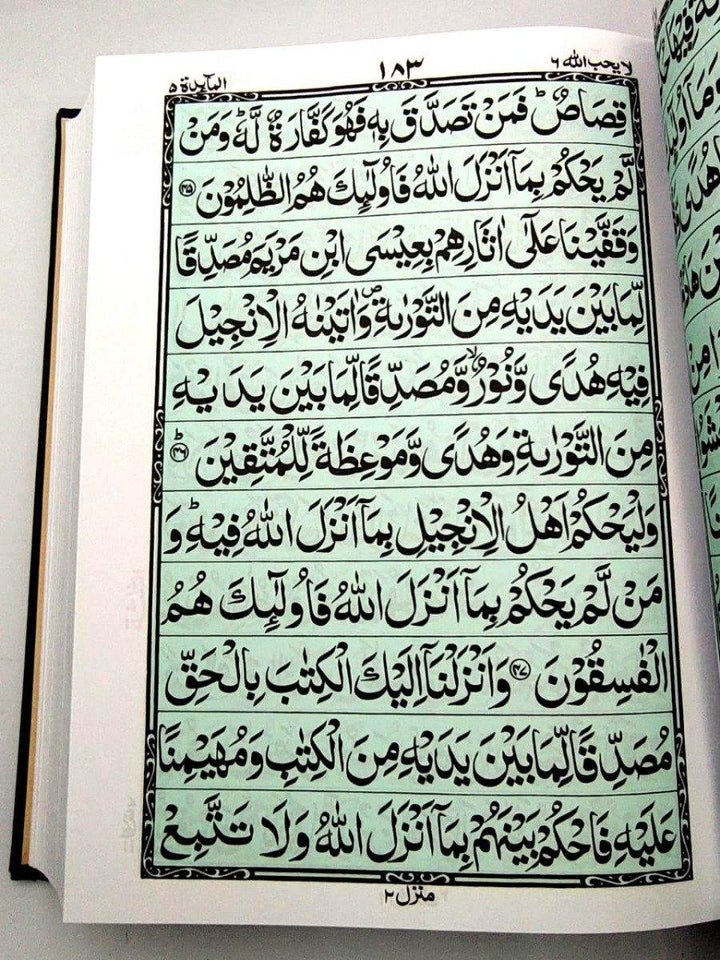 لا يحب الله ٦ ١٨٣ المآئدة ٥
قِصَاصٌ ؕ فَمَنْ تَصَدَّقَ بِهٖ فَهُوَ كَفَّارَةٌ لَّهٗ ؕ وَمَنْ
لَّمْ يَحْكُمْ بِمَاۤ اَنْزَلَ اللّٰهُ فَاُولٰٓئِكَ هُمُ الظّٰلِمُوْنَ ﴿۴۵﴾
وَقَفَّيْنَا عَلٰۤى اٰثَارِهِمْ بِعِيْسَى ابْنِ مَرْيَمَ مُصَدِّقًا
لِّمَا بَيْنَ يَدَيْهِ مِنَ التَّوْرٰىةِ ۪ وَاٰتَيْنٰهُ الْاِنْجِيْلَ
فِيْهِ هُدًى وَّنُوْرٌ ۙ وَّمُصَدِّقًا لِّمَا بَيْنَ يَدَيْهِ
مِنَ التَّوْرٰىةِ وَهُدًى وَّمَوْعِظَةً لِّلْمُتَّقِيْنَ ؕ﴿۴۶﴾
وَلْيَحْكُمْ اَهْلُ الْاِنْجِيْلِ بِمَاۤ اَنْزَلَ اللّٰهُ فِيْهِ ؕ وَ
مَنْ لَّمْ يَحْكُمْ بِمَاۤ اَنْزَلَ اللّٰهُ فَاُولٰٓئِكَ هُمُ
الْفٰسِقُوْنَ ﴿۴۷﴾ وَاَنْزَلْنَاۤ اِلَيْكَ الْكِتٰبَ بِالْحَقِّ
مُصَدِّقًا لِّمَا بَيْنَ يَدَيْهِ مِنَ الْكِتٰبِ وَمُهَيْمِنًا
عَلَيْهِ فَاحْكُمْ بَيْنَهُمْ بِمَاۤ اَنْزَلَ اللّٰهُ وَلَا تَتَّبِعْ
منزل ٢